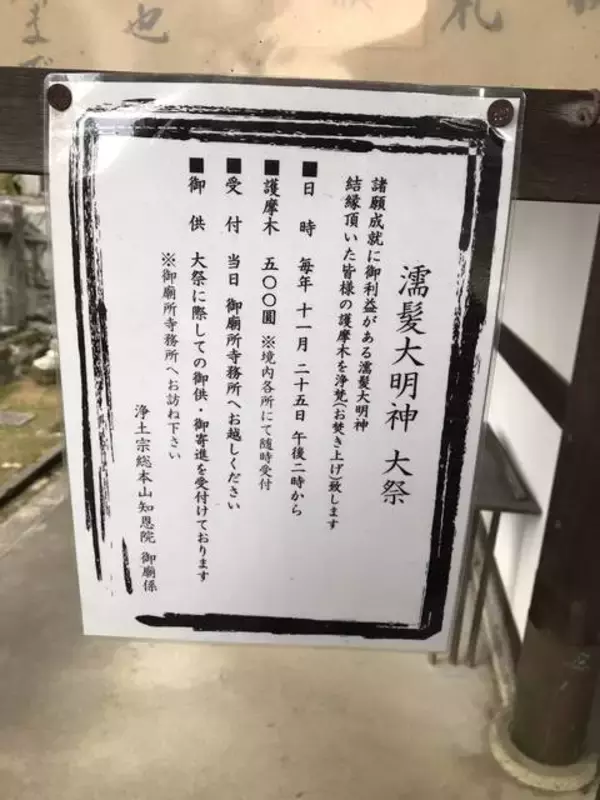 濡髪大明神 大祭
諸願成就に御利益がある濡髪大明神
結縁頂いた皆様の護摩木を浄焚(お焚き上げ)致します
■日 時 毎年 十一月 二十五日 午後二時から
■護摩木 五〇〇圓 ※境内各所にて随時受付
■受 付 当日 御廟所寺務所へお越しください
■御 供 大祭に際しての御供・御寄進を受付けております
※御廟所寺務所へお訪ね下さい
浄土宗総本山知恩院 御廟係
札
也
まで